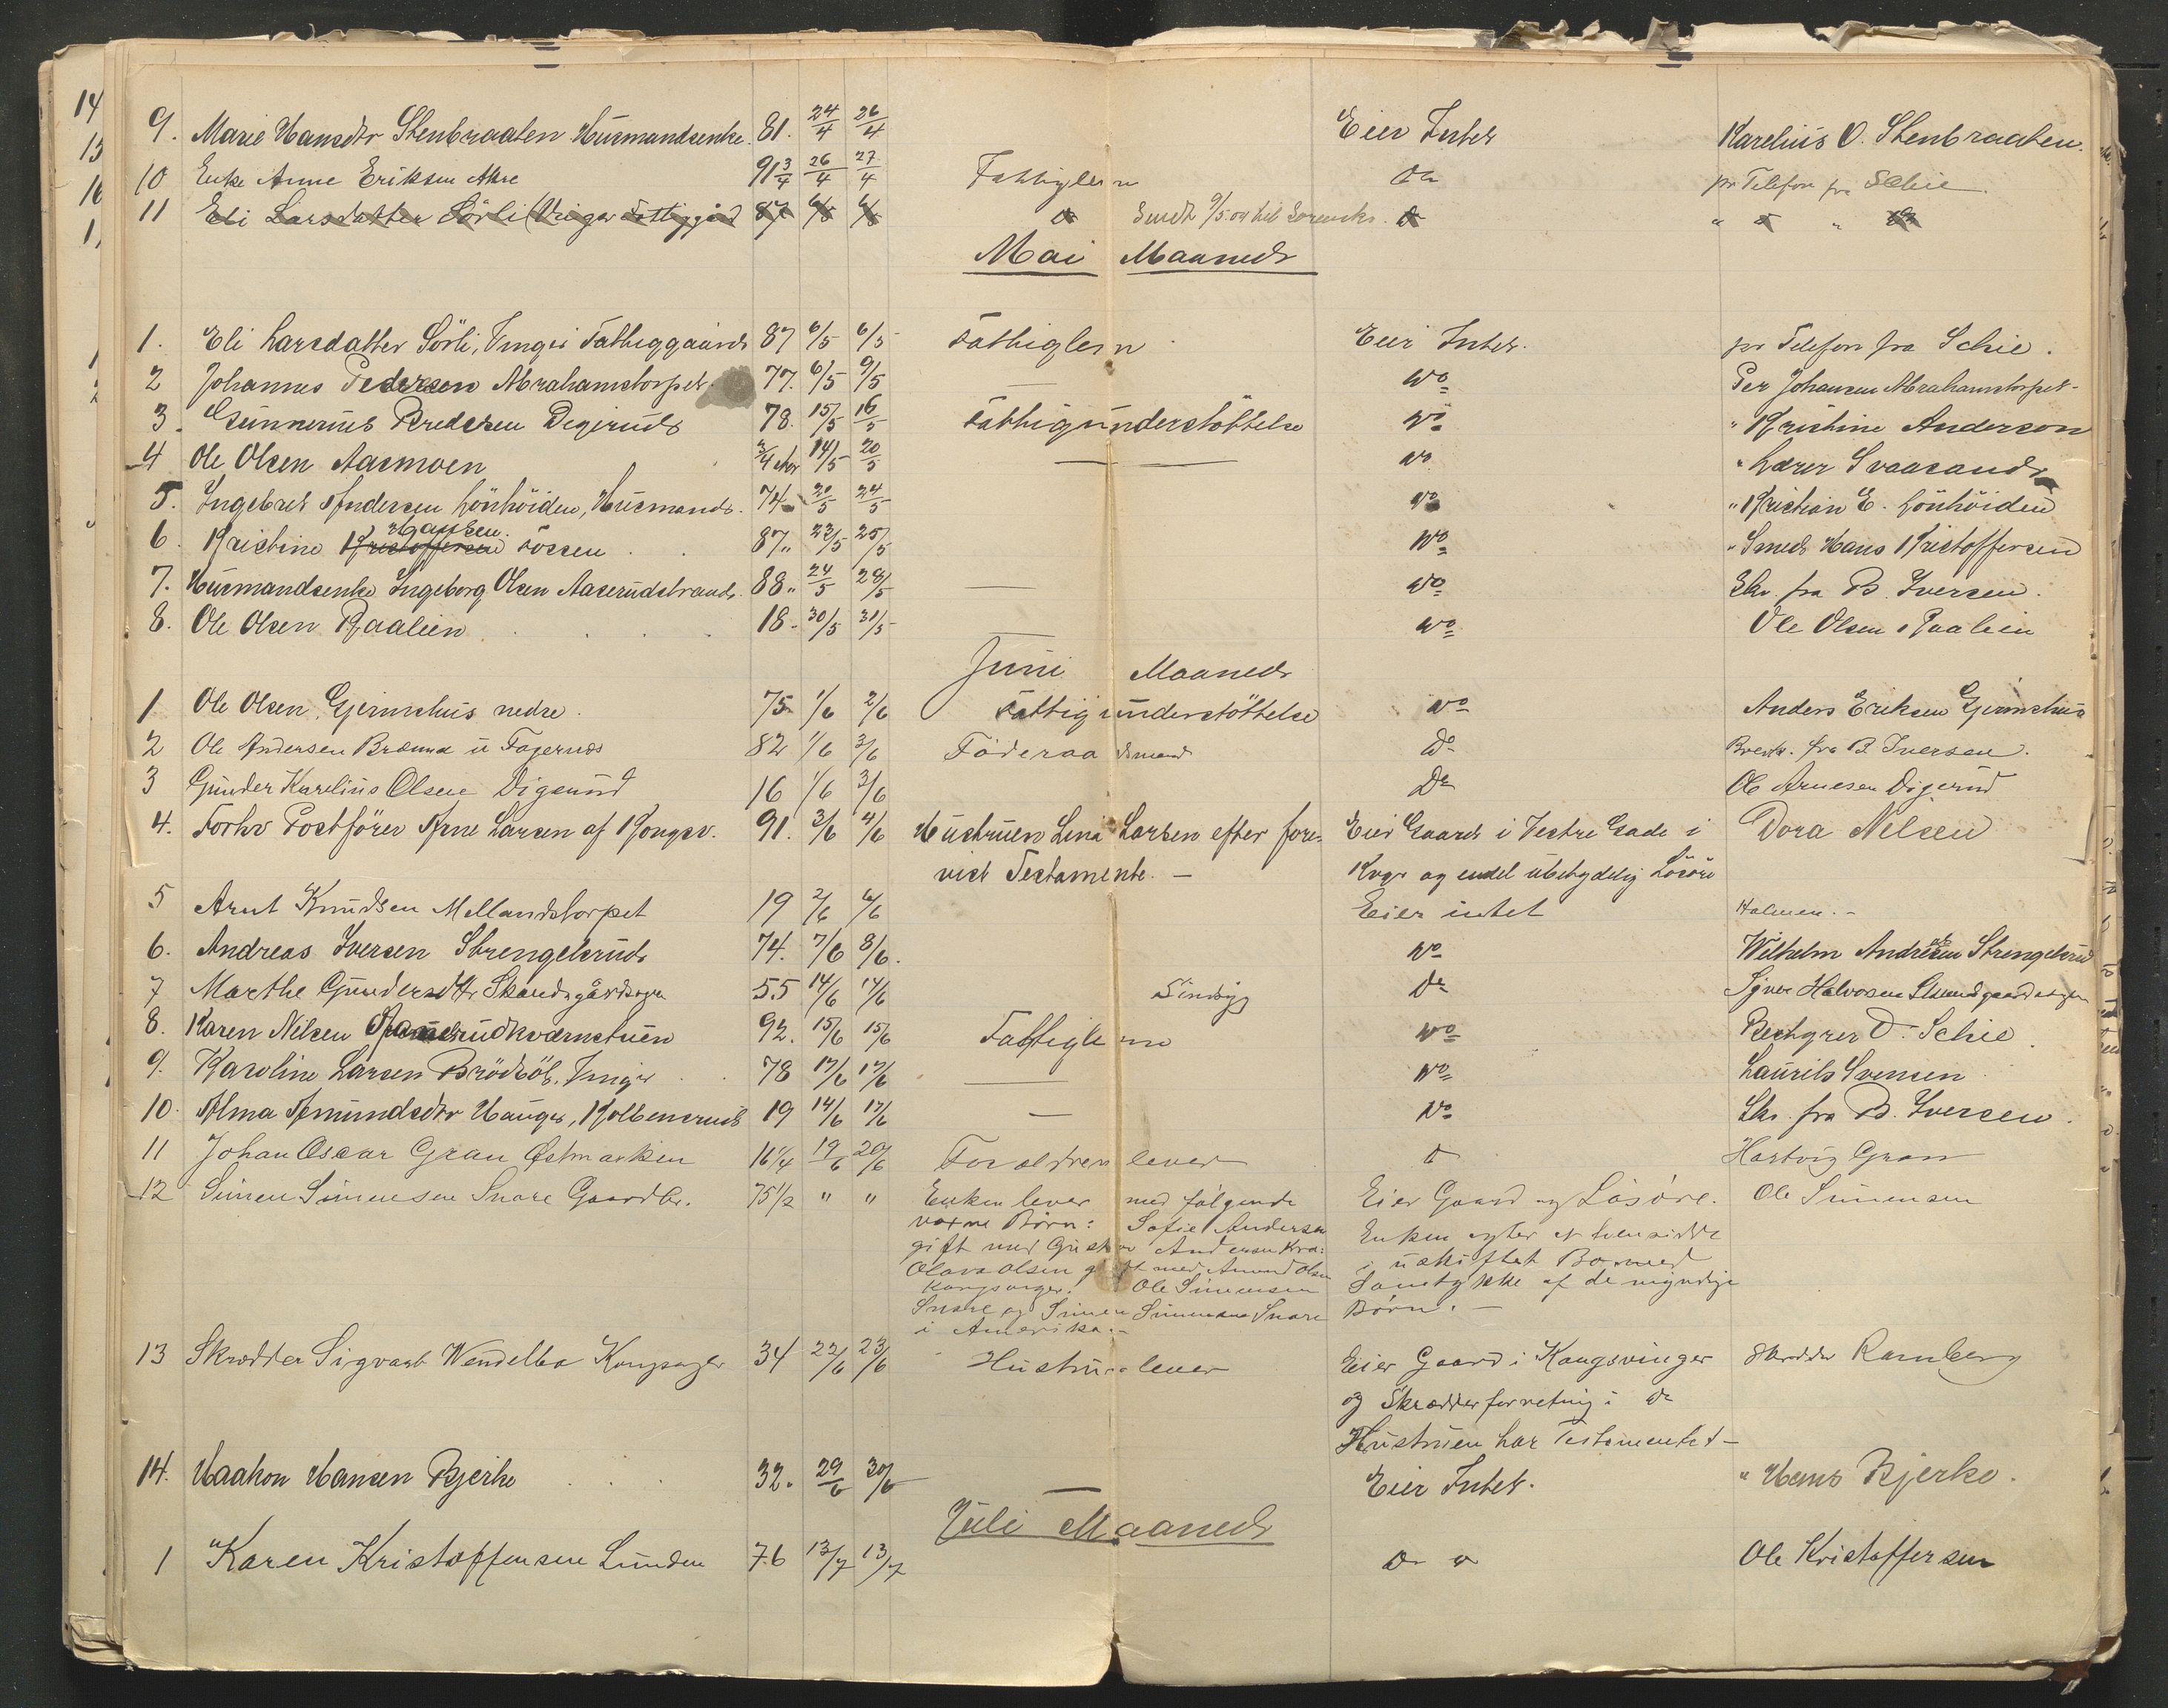 9. Marie Hansdtr Stenbraaten Husmandsenke. 81. 24/4 26/4 Eier Intet Karelius O. Stenbraaten.
10 Enke Anne Eriksen Akre 91 3/4 26/4 27/4 Fattiglem Do pr Telefon fra Schie.
11 Eli Larsdatter Sörli Vinger Fattiggård 87 6/5 6/5 Do Sendt 9/5 04 til Sorenskr. Do " "
Mai Maaned
1. Eli Larsdatter Sörli, Vinger Fattiggaard 87 6/5 6/5 Fattiglem Eier Intet. pr Telefon fra Schie.
2 Johannes Pedersen Abrahamstorpet. 77. 6/5 9/5 — Do Per Johansen Abrahamstorpet
3. Gunnerius Predersen Digerud 78. 15/5 16/5 Fattigunderstöttelse Do " Kristine Anderson
4 Ole Olsen Aasmoen 3/4 14/5 20/5 — — Do " Lærer Svaasand
5. Ingebret Andersen Lönhöiden, Husmand. 74 20/5 24/5 Do " Kristian E. Lönhöiden
Hansen.
6. Kristine Kristoffersen Fossen 87 " 23/5 25/5 Do " Smed Hans Kristoffersen
7. Husmandsenke Ingeborg Olsen Aaserudstrand. 88 " 24/5 28/5 — Do Skr. fra B. Iversen.
8. Ole Olsen Raalien 18. 30/5 31/5 Do Ole Olsen Raalien
Juni Maaned
1 Ole Olsen Gjermshus nedre. 75. 1/6 2/6 Fattigunderstöttelse Do Anders Eriksen Gjermshus
2 Ole Andersen Brænna u Fagernæs 82 1/6 3/6 Föderaadsmand Do fra B. Iversen.
3 Gunder Karelius Olsen Digerud 16 1/6 3/6 Do Ole Arnesen Digerud
4. Forhv Postförer Arne Larsen af Kongsv. 91. 3/6 4/6 Hustruen Lina Larsen efter fore- Eier Gaard i Vestre Gade i Dora Nelsen
vist Testamente. — Kvgr og endel ubetydelig Lösöre
5 Arnt Knudsen Mellandstorpet 19 2/6 6/6 Eier intet Holmen. -
6. Andreas Iversen Strengelsrud 74. 7/6 8/6. Do Wilhelm Andresen Strengelsrud
7 Marthe Gundersdtr 55 14/6 14/6 Sindsyg Do Halvorsen
8. Karen Nilsen 92. 15/6 15/6 Fattiglem Do Bestyrer D. Schie.
9. Karoline Larsen Brödböl, Vinger 78 17/6 17/6 — Do Laurits Svensen
10. Alma Amundsdtr Hauger, Kolbensrud 19 14/6 17/6 — Do Skr. fra B. Iversen.
11 Johan Oscar Gran Østmarken 16 1/4 19/6 20/6 Forældren lever Do Hartvig Gran
12 Simen Simensen Snare Gaardbr. 75 1/2 " " Enken lever med følgende Eier Gaard og Lösöre. Ole Simensen
voxne Børn: Sofie Andersen Enken agter at hensidde
gift med Gustav Andersen i uskiftet Bo med
Olava Olsen gift med Amund Olsen Samtykke af de myndige
Kongsvinger. Ole Simensen Børn. —
Snare og Simen Simensen Snare
i Amerika. -
13 Skrædder Sigvart Wendelbo Kongsvinger 34 22/6 23/6 Hustruen lever Eier Gaard i Kongsvinger Skrædder Ramberg
og Skrædderforretning i do
Hustruen har Testamentet —
14. Haakon Hansen Bjerke 32. 29/6 30/6 Eier Intet. " Hans Bjerke.
Juli Maaned
1 Karen Kristoffersen Lunden 76 13/7 13/7 Do " Ole Kristoffersen